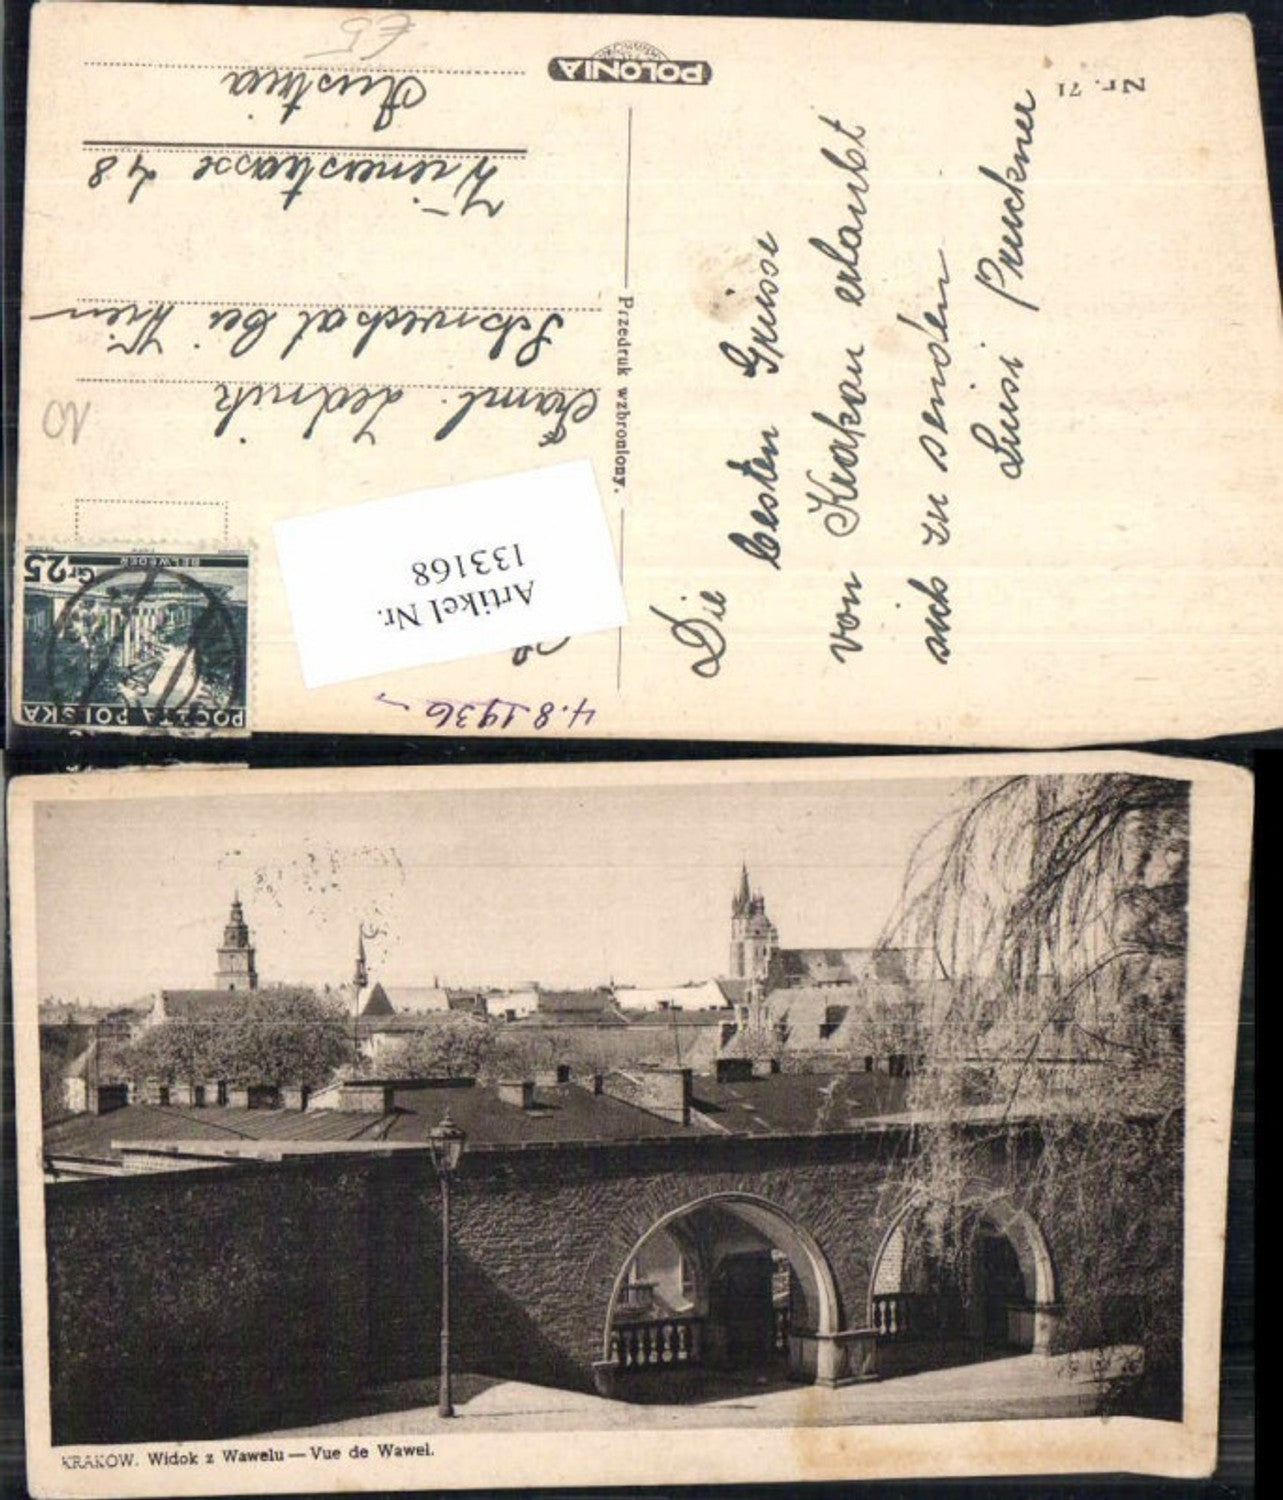 Nr. 71
POLONIA
Die besten Grüsse
von Krakau erlaubt
sich zu senden
Luisi Pruckner
Przedruk wzbroniony.
4.8.1936
Artikel Nr.
133168
POCZTA POLSKA
BELWEDER
Gr 25
Faml. Lednik
Schwechat bei Wien
Wienerstrasse 48
Austria
£5
10
KRAKOW. Widok z Wawelu — Vue de Wawel.